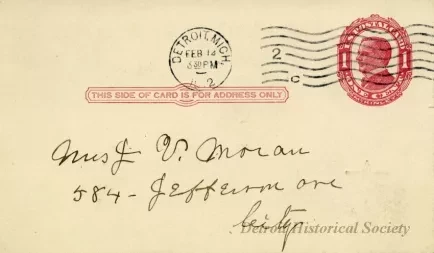 DETROIT, MICH.
FEB 14
3 30 PM
2
2
C
U.S. POSTAL CARD
1 1
ONE CENT
McKINLEY
THIS SIDE OF CARD IS FOR ADDRESS ONLY
Mrs J V. Moran
584 - Jefferson ave
City
Detroit Historical Society